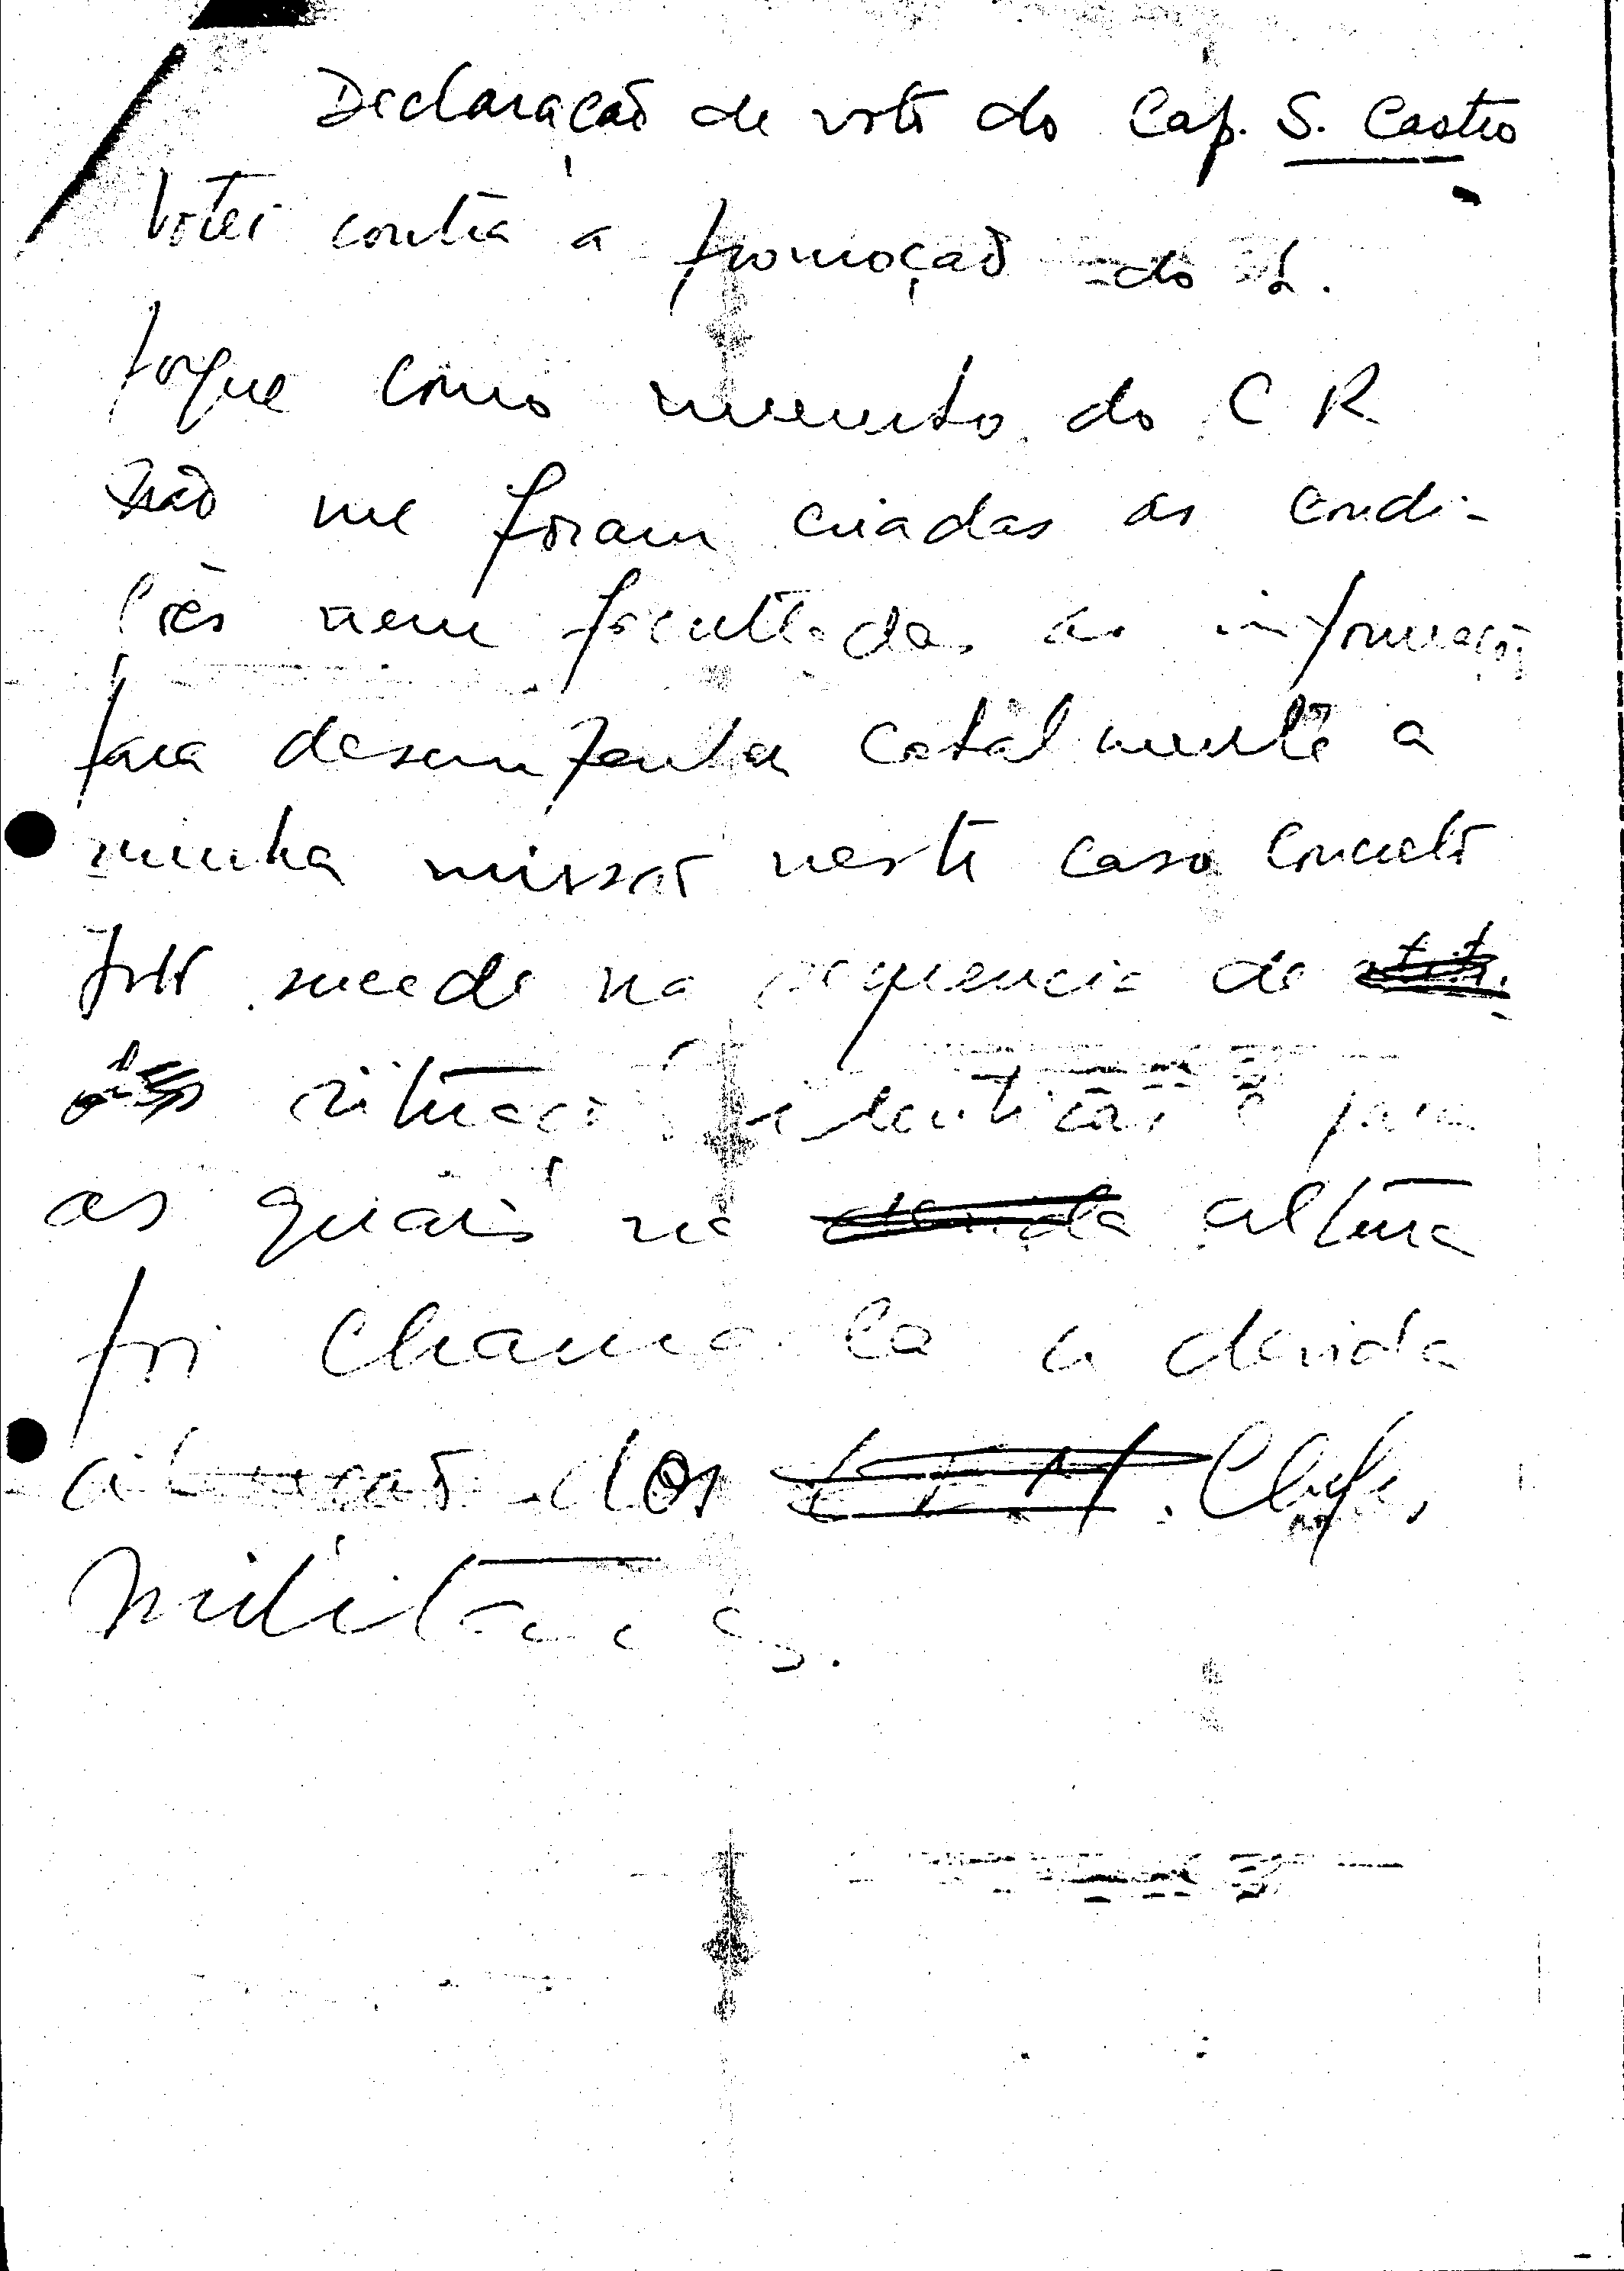 Declaração de voto do Cap. S. Castro
Votei contra a promoção do
porque como membro do CR
não me foram criadas as condi-
ções nem facultadas as informações
para desempenhar cabalmente a
minha missão neste caso concreto
Isto sucede na sequencia de
situações identicas e para
as quais na devida altura
foi chamada a devida
atenção dos Chefes
militares.